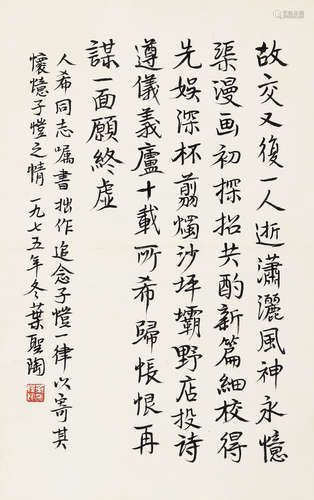 故交又復一人逝瀟灑風神永憶
渠漫画初探招共酌新篇細校得
先娛深杯翦燭沙坪壩野店投詩
遵儀義廬十載所希歸悵恨再
謀一面願終虛
人希同志囑書拙作追念子愷一律以寄其
懷憶子愷之情一九七五年冬葉聖陶